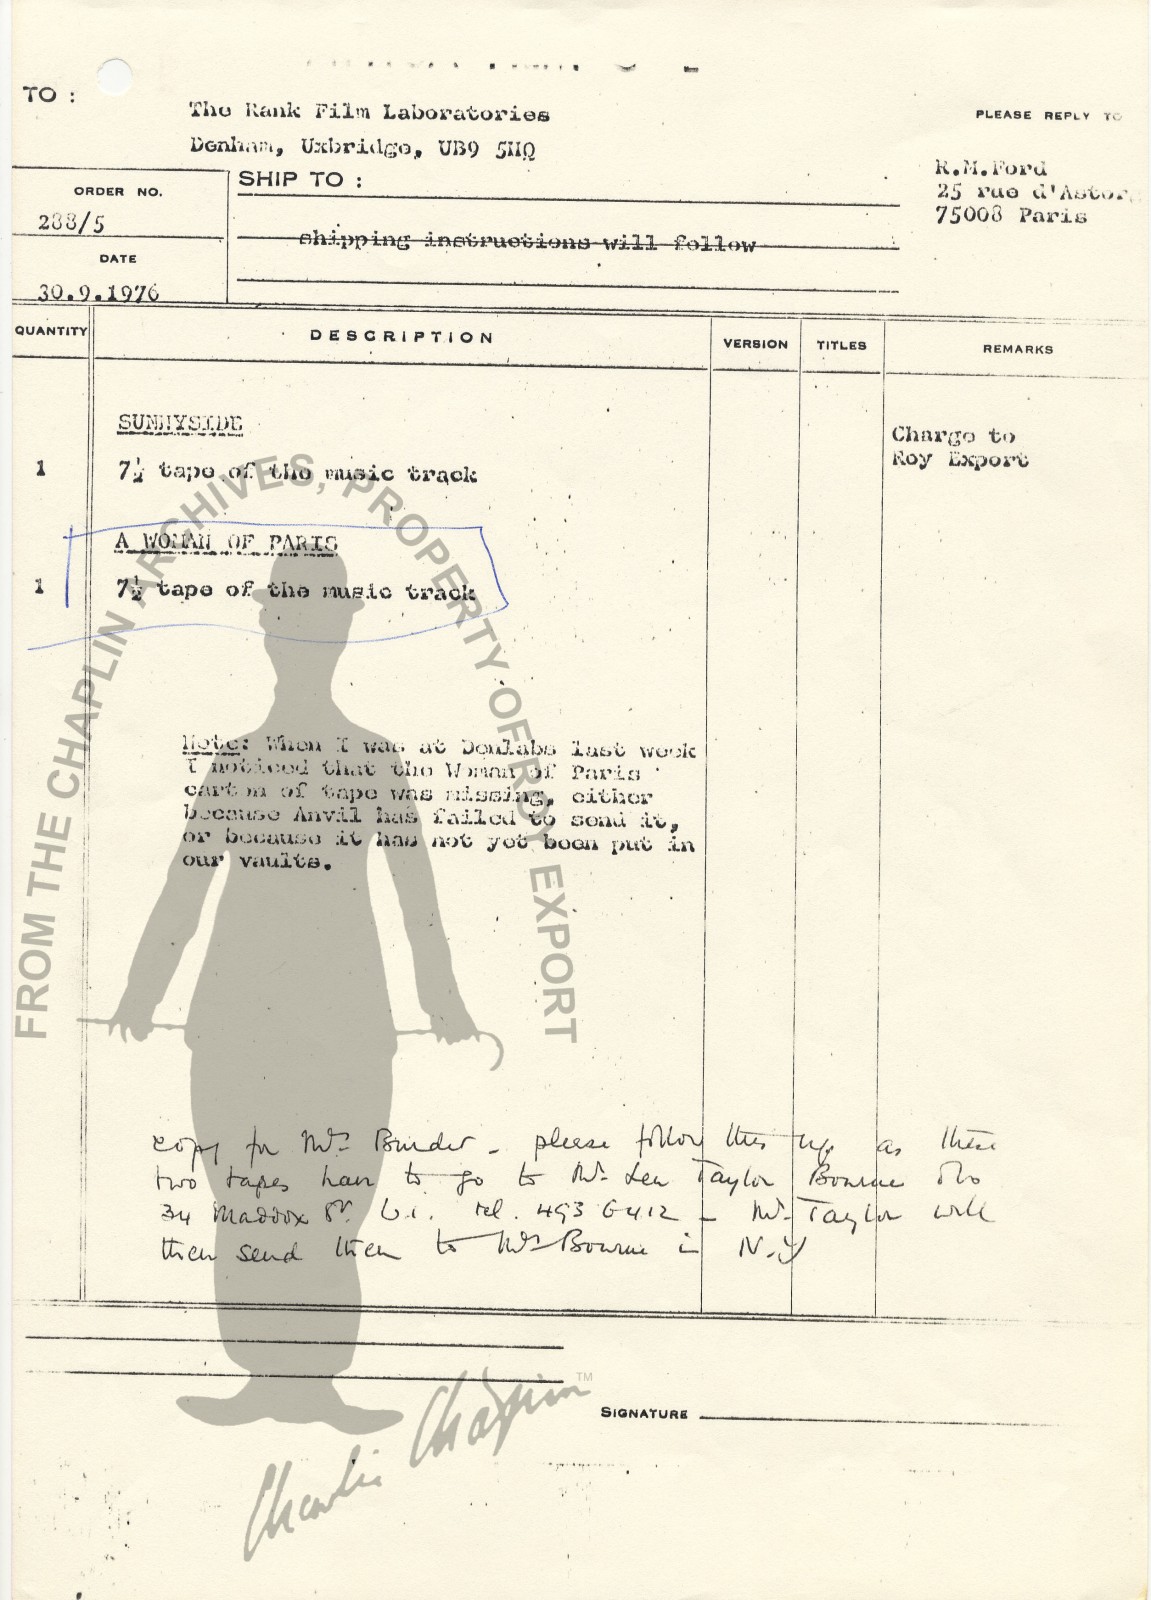 TO :
The Rank Film Laboratories
Denham, Uxbridge, UB9 5HQ
PLEASE REPLY TO
R.M.Ford
25 rue d'Astor
75008 Paris
ORDER NO.
288/5
DATE
30.9.1976
SHIP TO :
shipping instructions will follow
QUANTITY
DESCRIPTION
VERSION
TITLES
REMARKS
SUNNYSIDE
1 7½ tape of the music track
Charge to
Roy Export
A WOMAN OF PARIS
1 7½ tape of the music track
Note: When I was at Denlabs last week
I noticed that the Woman of Paris
carton of tape was missing, either
because Anvil has failed to send it,
or because it has not yet been put in
our vaults.
copy for Mrs Binder - please follow this up as these
two tapes have to go to Mr. Len Taylor Bourne
34 Maddox St. W.1. tel. 493 6412 - Mr. Taylor will
then send them to Mrs Bourne in N.Y
SIGNATURE
FROM THE CHAPLIN ARCHIVES, PROPERTY OF ROY EXPORT
Charlie Chaplin TM